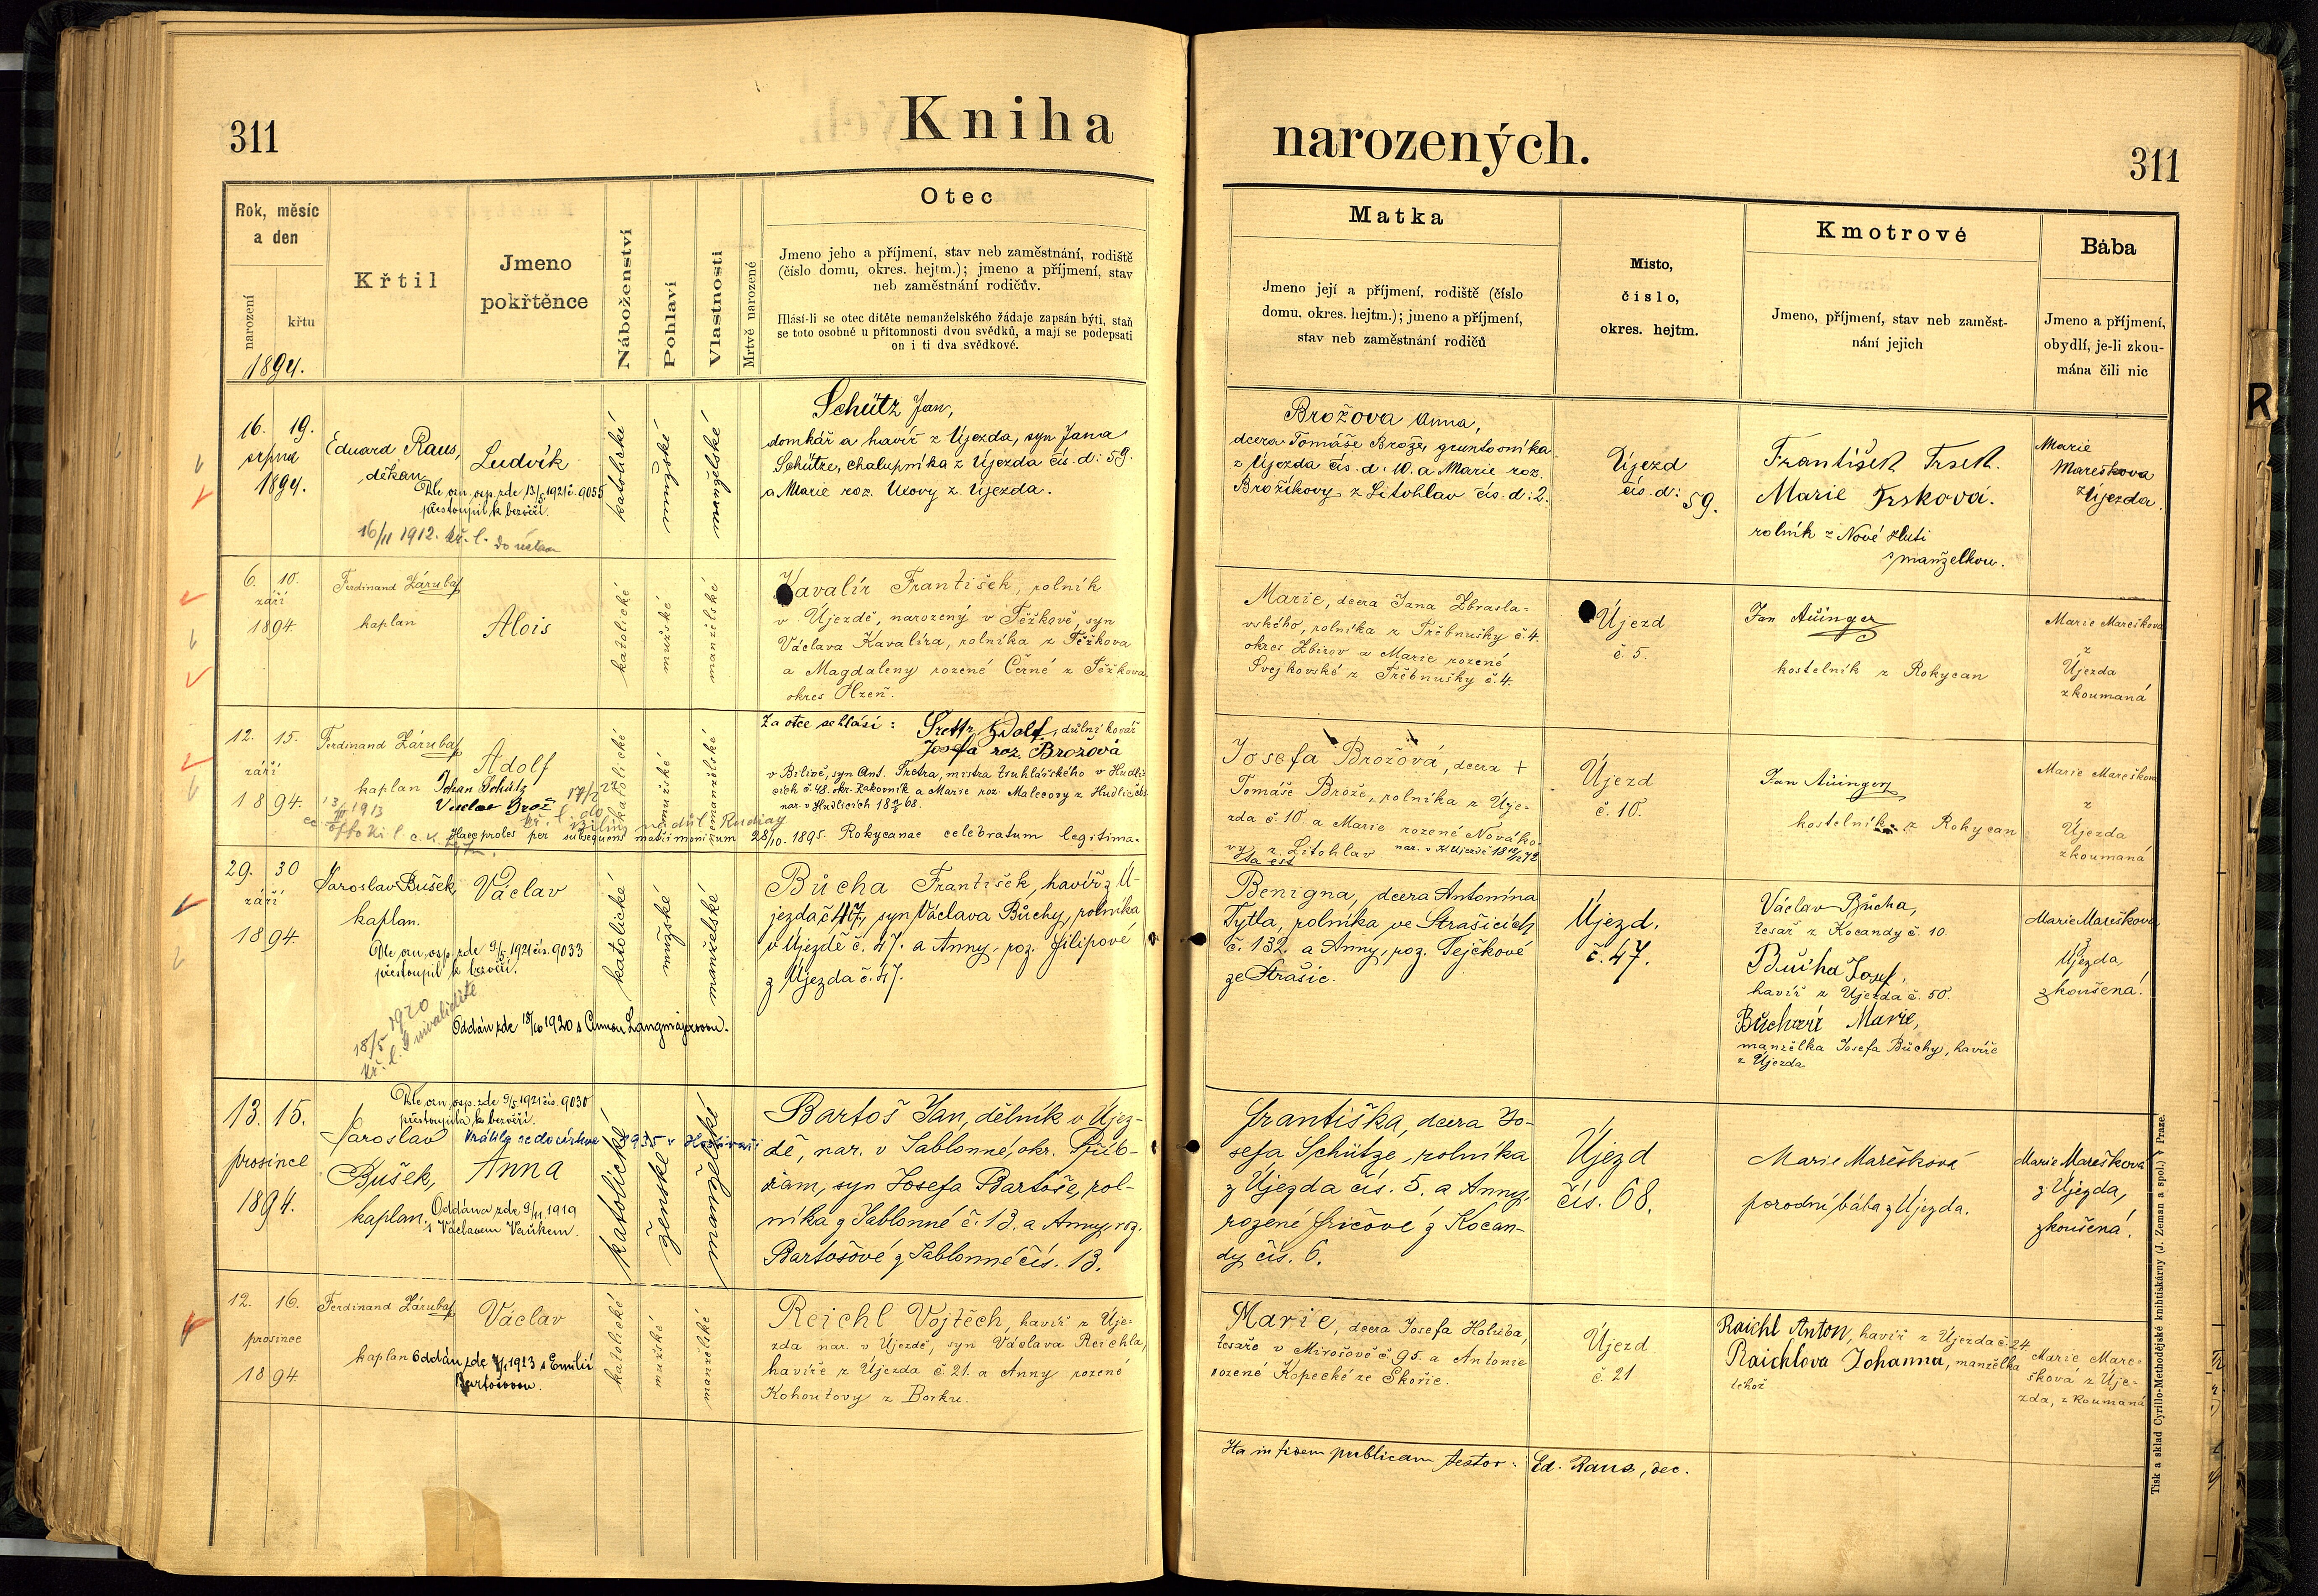 311
Kniha
narozených.
311
Rok, měsíc
a den
narození
křtu
1894.
Křtil
Jmeno
pokřtěnce
Náboženství
Pohlaví
Vlastnosti
Mrtvě narozené
Otec
Jmeno jeho a příjmení, stav neb zaměstnání, rodiště
(číslo domu, okres. hejtm.); jmeno a příjmení, stav
neb zaměstnání rodičův.
Hlásí-li se otec dítěte nemanželského žádaje zapsán býti, staň
se toto osobně u přítomnosti dvou svědků, a mají se podepsati
on i ti dva svědkové.
Matka
Jmeno její a příjmení, rodiště (číslo
domu, okres. hejtm.); jmeno a příjmení,
stav neb zaměstnání rodičů
Místo,
číslo,
okres. hejtm.
Kmotrové
Jmeno, příjmení, stav neb zaměst-
nání jejich
Bába
Jmeno a příjmení,
obydlí, je-li zkou-
mána čili nic
R
16. 19.
srpna
1894.
Eduard Raus,
děkan
Ludvík
Dle ozn. osp. zde 13/5 1921 č. 9055
přestoupil k bezvěří.
16/11 1912. kř. l.
katolické
mužské
manželské
Schütz Jan,
domkář a havíř z Újezda, syn Jana
Schütze, chalupníka z Újezda čís. d. 59.
a Marie roz. z Újezda.
Brožova Anna,
dcera Tomáše Brože, gruntovníka
z Újezda čís. d. 10. a Marie roz.
Brožíkovy z Litohlav čís. d. 2.
Újezd
čís. d:
59.
František Trsek.
Marie Trsková.
rolník z Nové Huti
s manželkou.
Marie
Mareškova
z Újezda.
6. 10.
září
1894.
Ferdinand Záruba
kaplan
Alois
katolické
mužské
manželské
Kavalír František, rolník
v Újezdě, narozený v Těžkově, syn
Václava Kavalíra, rolníka z Těžkova
a Magdaleny rozené Černé z Těžkova
okres Plzeň.
Marie, dcera Jana Zbrasla-
vského, rolníka z Třebnušky č. 4.
okres Zbirov a Marie rozené
Svejkovské z Třebnušky č. 4.
Újezd
č. 5.
Jan Aüinger
kostelník z Rokycan
Marie Mareškova
z
Újezda
zkoumaná
12. 15.
září
1894.
Ferdinand Záruba
kaplan
Adolf
Johan Schütz
Václav Brož
katolické
mužské
nemanželské
Za otce se hlásí: Adolf, důlní kovář
Josefa roz. Brožová
v Bílině, syn Ant. Tretra, mistra truhlářského v Hudli-
cích č. 48. okr. Rakovník a Marie roz. Malecovy z Hudlic
nar. v Hudlicích
Haec proles per subsequens matrimonium 28/10. 1895. Rokycanae celebratum legitima-
ta est
Josefa Brožová, dcera +
Tomáše Brože, rolníka z Úje-
zda č. 10. a Marie rozené Novako-
vy z Litohlav
Újezd
č. 10.
Jan Aüinger
kostelník z Rokycan
Marie Mareškova
z
Újezda
zkoumaná
29. 30
září
1894
Jaroslav Bušek,
kaplan.
Václav
Dle ozn. osp. zde 9/5 1921 čís. 9033
přestoupil k bezvěří.
18/5 1920
kř. l.
Oddán zde 18/10 1920 s Annou Langmajerovou.
katolické
mužské
manželské
Bůcha František, havíř z Ú-
jezda č 47, syn Václava Bůchy, rolníka
v Újezdě č. 47. a Anny, roz. Filipové
z Újezda č. 47.
Benigna, dcera Antonína
Tytla, rolníka ve Strašicích
č. 132. a Anny, roz. Tejčkové
ze Strašic.
Újezd.
č. 47.
Václav Bůcha,
tesař z Kocandy č. 10.
Bůcha Josef,
havíř z Újezda č. 50.
Bůchová Marie,
manželka Josefa Bůchy, havíře
z Újezda
Marie Mareškova
z
Újezda,
zkoušená.
13. 15.
prosince
1894.
Dle ozn. osp. zde 9/5 1921 čís. 9030
přestoupila k bezvěří.
Jaroslav
Bušek,
kaplan.
Vrátila se do církve 1935 v
Anna
Oddána zde 9/11 1919
s Václavem Vaňkem.
katolické
ženské
manželské
Bartoš Jan, dělník v Újez-
dě, nar. v Jablonné, okr. Příb-
ram, syn Josefa Bartoše, rol-
níka z Jablonné č. 13. a Anny, roz.
Bartošové z Jablonné čís. 13.
Františka, dcera Jo-
sefa Schütze, rolníka
z Újezda čís. 5. a Anny,
rozené Fričové z Kocan-
dy čís. 6.
Újezd
čís. 68.
Marie Marešková
porodní bába z Újezda.
Marie Mareškova
z Újezda,
zkoušená.
12. 16.
prosince
1894
Ferdinand Záruba
kaplan
Václav
Oddán zde 1923 s Emilií
Bartošovou.
katolické
mužské
manželské
Reichl Vojtěch, havíř z Úje-
zda nar. v Újezdě, syn Václava Reichla,
havíře z Újezda č. 21. a Anny rozené
Kohoutovy z Borku.
Marie, dcera Josefa Holuba,
tesaře v Mirošově č. 95. a Antonie
rozené Kopecké ze Skořic.
Újezd
č. 21
Raichl Anton, havíř z Újezda č. 24
Raichlova Johanna, manželka
téhož
Marie Mare-
škova z Úje-
zda, zkoumaná
Ita in fidem publicam testor: Ed. Raus, dec.
Tisk a sklad Cyrillo-Methodějské knihtiskárny (J. Zeman a spol.) v Praze.